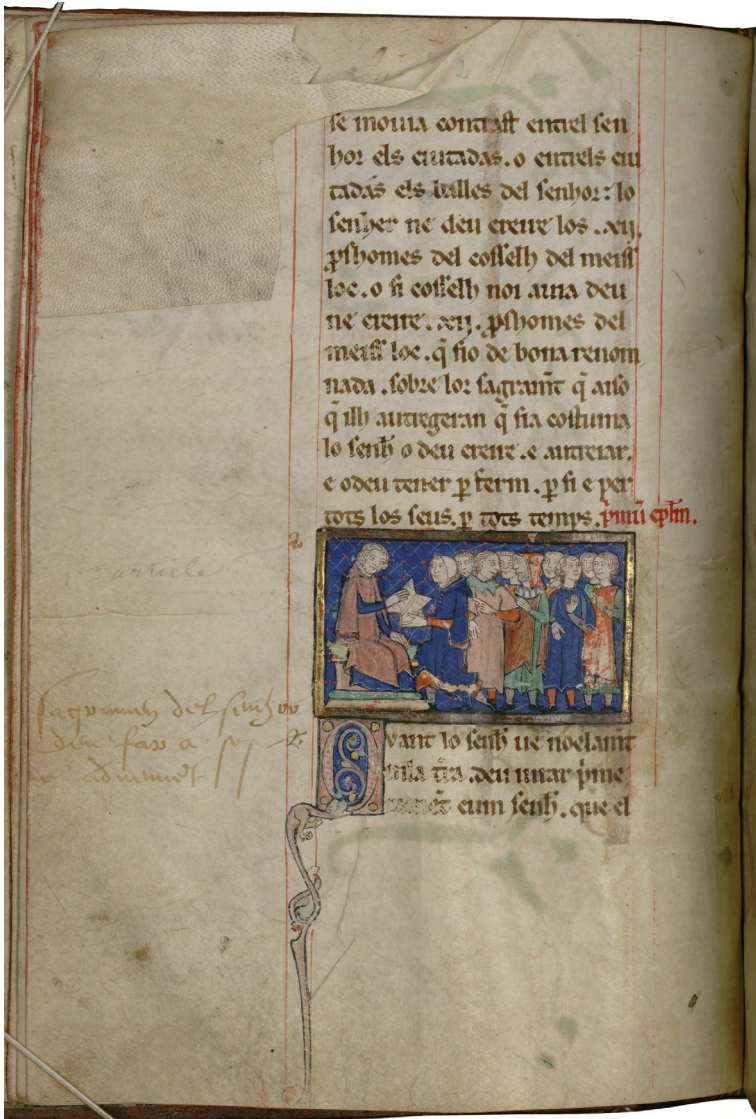 se mouia contrast entrel sen
hor els ciutadas. o entrels ciu
tadas els bailles del senhor: lo
senher ne deu creire los .xij.
ꝓshomes del cosselh del meiss
loc. o si cosselh noi auia deu
ne creire .xij. ꝓshomes del
meiss loc. q̃ sio de bona renom
nada. sobre lor sagramt̃ q̃ aiso
q̃ ilh autregeran q̃ sia costuma
lo senh̃ o deu creire. e autreiar.
e o deu tener ꝑ ferm. ꝑ si e per
tots los seus. ꝑ tots temps. p̃mũ
Qvant lo senh̃ ue noelamt̃
t̃ra. deu iurar p̃me
cum senh̃. que el
article
del senhor
deu far a